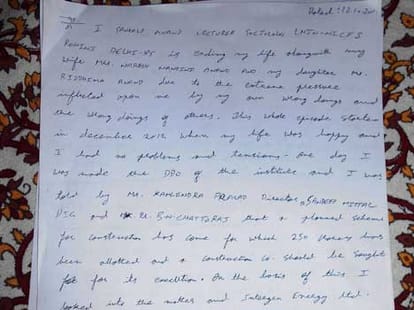 Dated: 12.10.201
I LECTURER
ROHINI DELHI-85 is ending my life alongwith my
wife MRS. ANAND AND my daughter MS.
RIDDHIMA ANAND due to the extreme pressure
inflicted upon me by my own wrong doings and
the wrong doings of others. This whole episode started
in december 2012 when my life was happy and
I had no problems and tensions. One day I
was made the DDO of the institute and I was
told by MR. PRASAD Director, SANDEEP MITTAL
DIG and that a planned scheme
for construction has come for which 250 has
been allotted and a construction Co. should be sought
for its execution. On the basis of this I
looked into the matter and Energy Ltd.